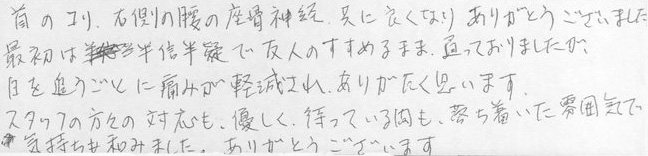 首のコリ、右側の腰の座骨神経、共に良くなりありがとうございました
最初は半信半疑で友人のすすめるまま、通っておりましたが、
日を追うごとに痛みが軽減され、ありがたく思います。
スタッフの方々の対応も、優しく、待っている間も、落ち着いた雰囲気で
気持ちも和みました。ありがとうございます